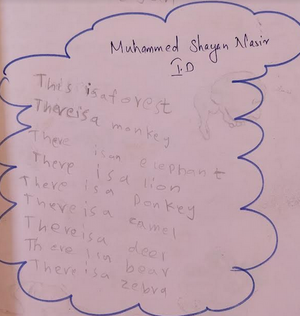 Muhammed Shayan Nasir
I.D
This is a forest
There is a monkey
There is an elephant
There is a lion
There is a Donkey
There is a camel
There is a deer
There is in bear
There is a zebra